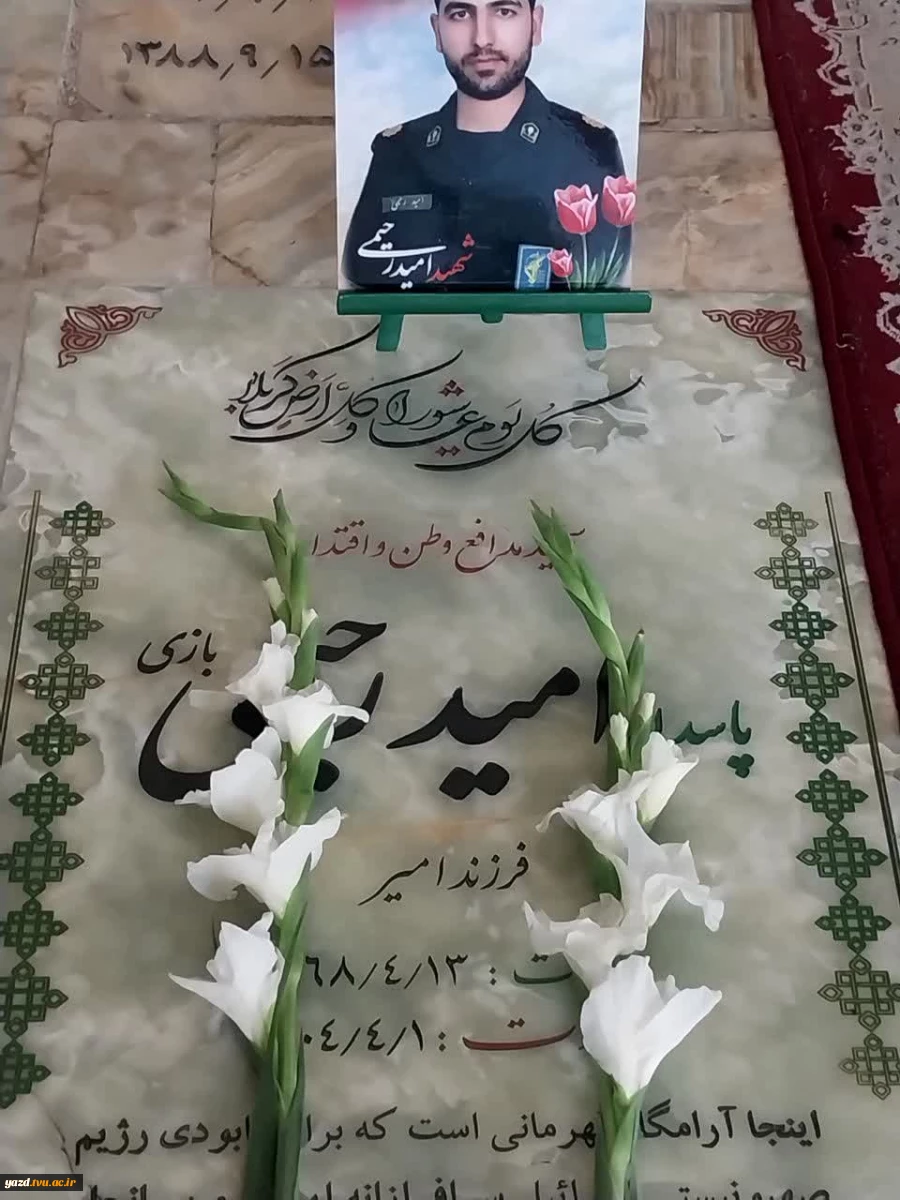 ۱۳۸۸٫۹٫۱۵
امید رحیمی
شهید امید رحیمی
کُل یَوم عاشورا وَ کُلِ اَرض کَربَلا
مدافع وطن و اقتدا
پاسدا امید رحیمی بازی
فرزند امیر
ت : ۶۸٫۴٫۱۳
ت : ۰۴٫۴٫۱
اینجا آرامگا هرمانی است که برا ابودی رژیم
yazd.tvu.ac.ir